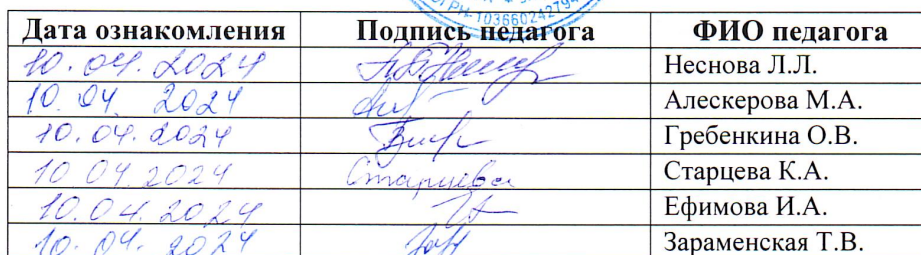 ОГРН-103660242794
Дата ознакомления Подпись педагога ФИО педагога
10.04.2024 Неснова Л.Л.
10.04 2024 Алескерова М.А.
10.04.2024 Гребенкина О.В.
10 04.2024 Старцева Старцева К.А.
10.04.2024 Ефимова И.А.
10.04.2024 Зараменская Т.В.